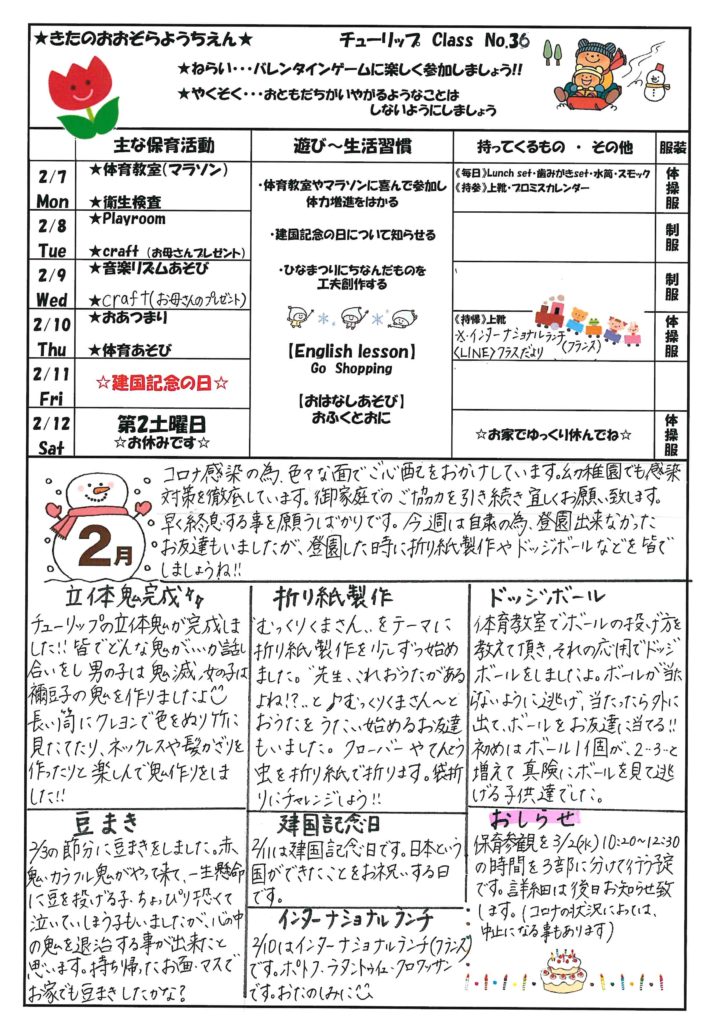 ★きたのおおぞらようちえん★
チューリップ Class No.36
★ねらい・・・バレンタインゲームに楽しく参加しましょう!!
★やくそく・・・おともだちがいやがるようなことは
しないようにしましょう
主な保育活動
遊び〜生活習慣
持ってくるもの ・ その他
服装
2/7
Mon
★体育教室(マラソン)
★衛生検査
2/8
Tue
★Playroom
★craft (お母さんプレゼント)
2/9
Wed
★音楽リズムあそび
★craft(お母さんのプレゼント)
2/10
Thu
★おあつまり
★体育あそび
2/11
Fri
☆建国記念の日☆
2/12
Sat
第2土曜日
☆お休みです☆
・体育教室やマラソンに喜んで参加し
体力増進をはかる
・建国記念の日について知らせる
・ひなまつりにちなんだものを
工夫創作する
【English lesson】
Go Shopping
【おはなしあそび】
おふくとおに
《毎日》Lunch set・歯みがきset・水筒・スモック
《持参》上靴・プロミスカレンダー
《持帰》上靴
※インターナショナルランチ
(フランス)
<LINE>クラスだより
☆お家でゆっくり休んでね☆
体操服
制服
制服
体操服
体操服
2月
コロナ感染の為、色々な面でご心配をおかけしています。幼稚園でも感染
対策を徹底しています。御家庭でのご協力を引き続き宜しくお願い致します。
早く終息する事を願うばかりです。今週は自粛の為、登園出来なかった
お友達もいましたが、登園した時に折り紙製作やドッジボールなどを皆で
しましょうね!!
立体鬼完成
チューリップの立体鬼が完成しま
した!!皆でどんな鬼が‥か話し
合いをし男の子は鬼滅、女の子は
禰豆子の鬼を作りましたよ
長い筒にクレヨンで色をぬり竹に
見たてたり、ネックレスや髪かざりを
作ったりと楽しんで鬼作りをしま
した!!
折り紙製作
"むっくりくまさん"をテーマに
折り紙製作を少しずつ始め
ました。"先生、これおうたがある
よね!?"と♪むっくりくまさん〜と
おうたをうたい始めるお友達
もいました。クローバーやてんとう
虫を折り紙で折ります。袋折
りにチャレンジしよう!!
ドッジボール
体育教室でボールの投げ方を
教えて頂き、それの応用でドッジ
ボールをしましたよ。ボールが当た
らないように逃げ、当たったら外に
出て、ボールをお友達に当てる!!
初めはボール1個が、2‥3‥と
増えて真険にボールを見て逃
げる子供達でした。
豆まき
2/3の節分に豆まきをしました。赤
鬼・カラフル鬼がやって来て、一生懸命
に豆を投げる子・ちょっぴり恐くて
泣いていしまう子もいましたが、心の中
の鬼を退治する事が出来たと
思います。持ち帰ったお面・マスで
お家でも豆まきしたかな?
建国記念日
2/11は建国記念日です。日本という
国ができたことをお祝いする日
です。
インターナショナルランチ
2/10はインターナショナルランチ(フランス)
です。ポトフ・ラタトゥイユ・クロワッサン
です。おたのしみに
おしらせ
保育参観を3/2(水)10:20〜12:30
の時間を3部に分けて行う予定
です。詳細は後日お知らせ致
します。(コロナの状況によっては、
中止になる事もあります)